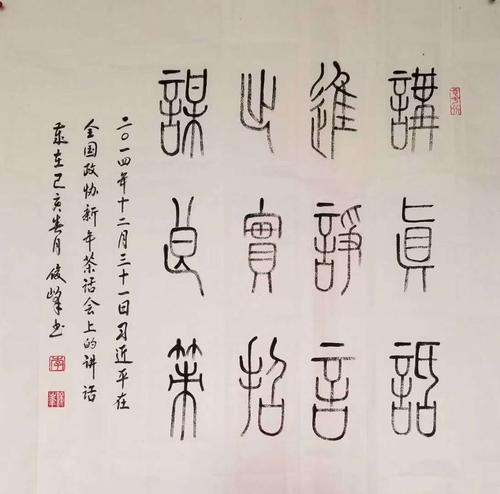 講真話
進諍言
出實招
謀良策
二〇一四年十二月三十一日习近平在
全国政协新年茶话会上的讲话
岁在己亥春月俊峰书